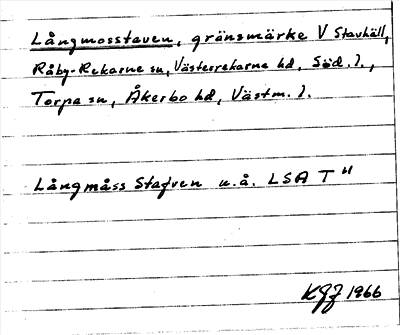 Långmosstaven, gränsmärke V Stavhäll,
Råby-Rekarne sn, Västerrekarne hd, Söd. l.,
Torpa sn, Åkerbo hd, Västm. l.
Långmåss Stafven u.å. LSA T"
KGJ 1966